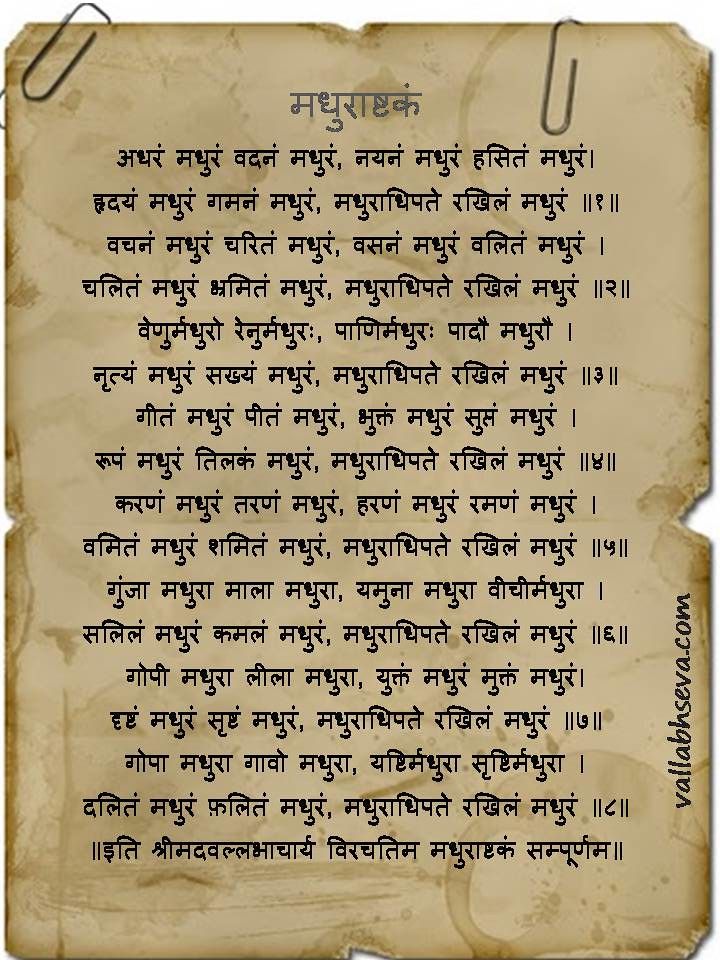 मधुराष्टकं
अधरं मधुरं वदनं मधुरं, नयनं मधुरं हसितं मधुरं।
हृदयं मधुरं गमनं मधुरं, मधुराधिपते रखिलं मधुरं ॥१॥
वचनं मधुरं चरितं मधुरं, वसनं मधुरं वलितं मधुरं ।
चलितं मधुरं भ्रमितं मधुरं, मधुराधिपते रखिलं मधुरं ॥२॥
वेणुर्मधुरो रेनुर्मधुरः, पाणिर्मधुरः पादौ मधुरौ ।
नृत्यं मधुरं सख्यं मधुरं, मधुराधिपते रखिलं मधुरं ॥३॥
गीतं मधुरं पीतं मधुरं, भुक्तं मधुरं सुप्तं मधुरं ।
रूपं मधुरं तिलकं मधुरं, मधुराधिपते रखिलं मधुरं ॥४॥
करणं मधुरं तरणं मधुरं, हरणं मधुरं रमणं मधुरं ।
वमितं मधुरं शमितं मधुरं, मधुराधिपते रखिलं मधुरं ॥५॥
गुंजा मधुरा माला मधुरा, यमुना मधुरा वीचीर्मधुरा ।
सलिलं मधुरं कमलं मधुरं, मधुराधिपते रखिलं मधुरं ॥६॥
गोपी मधुरा लीला मधुरा, युक्तं मधुरं मुक्तं मधुरं।
दृष्टं मधुरं सृष्टं मधुरं, मधुराधिपते रखिलं मधुरं ॥७॥
गोपा मधुरा गावो मधुरा, यष्टिर्मधुरा सृष्टिर्मधुरा ।
दलितं मधुरं फ़लितं मधुरं, मधुराधिपते रखिलं मधुरं ॥८॥
॥इति श्रीमदवल्लभाचार्य विरचतिम मधुराष्टकं सम्पूर्णम॥
vallabhseva.com